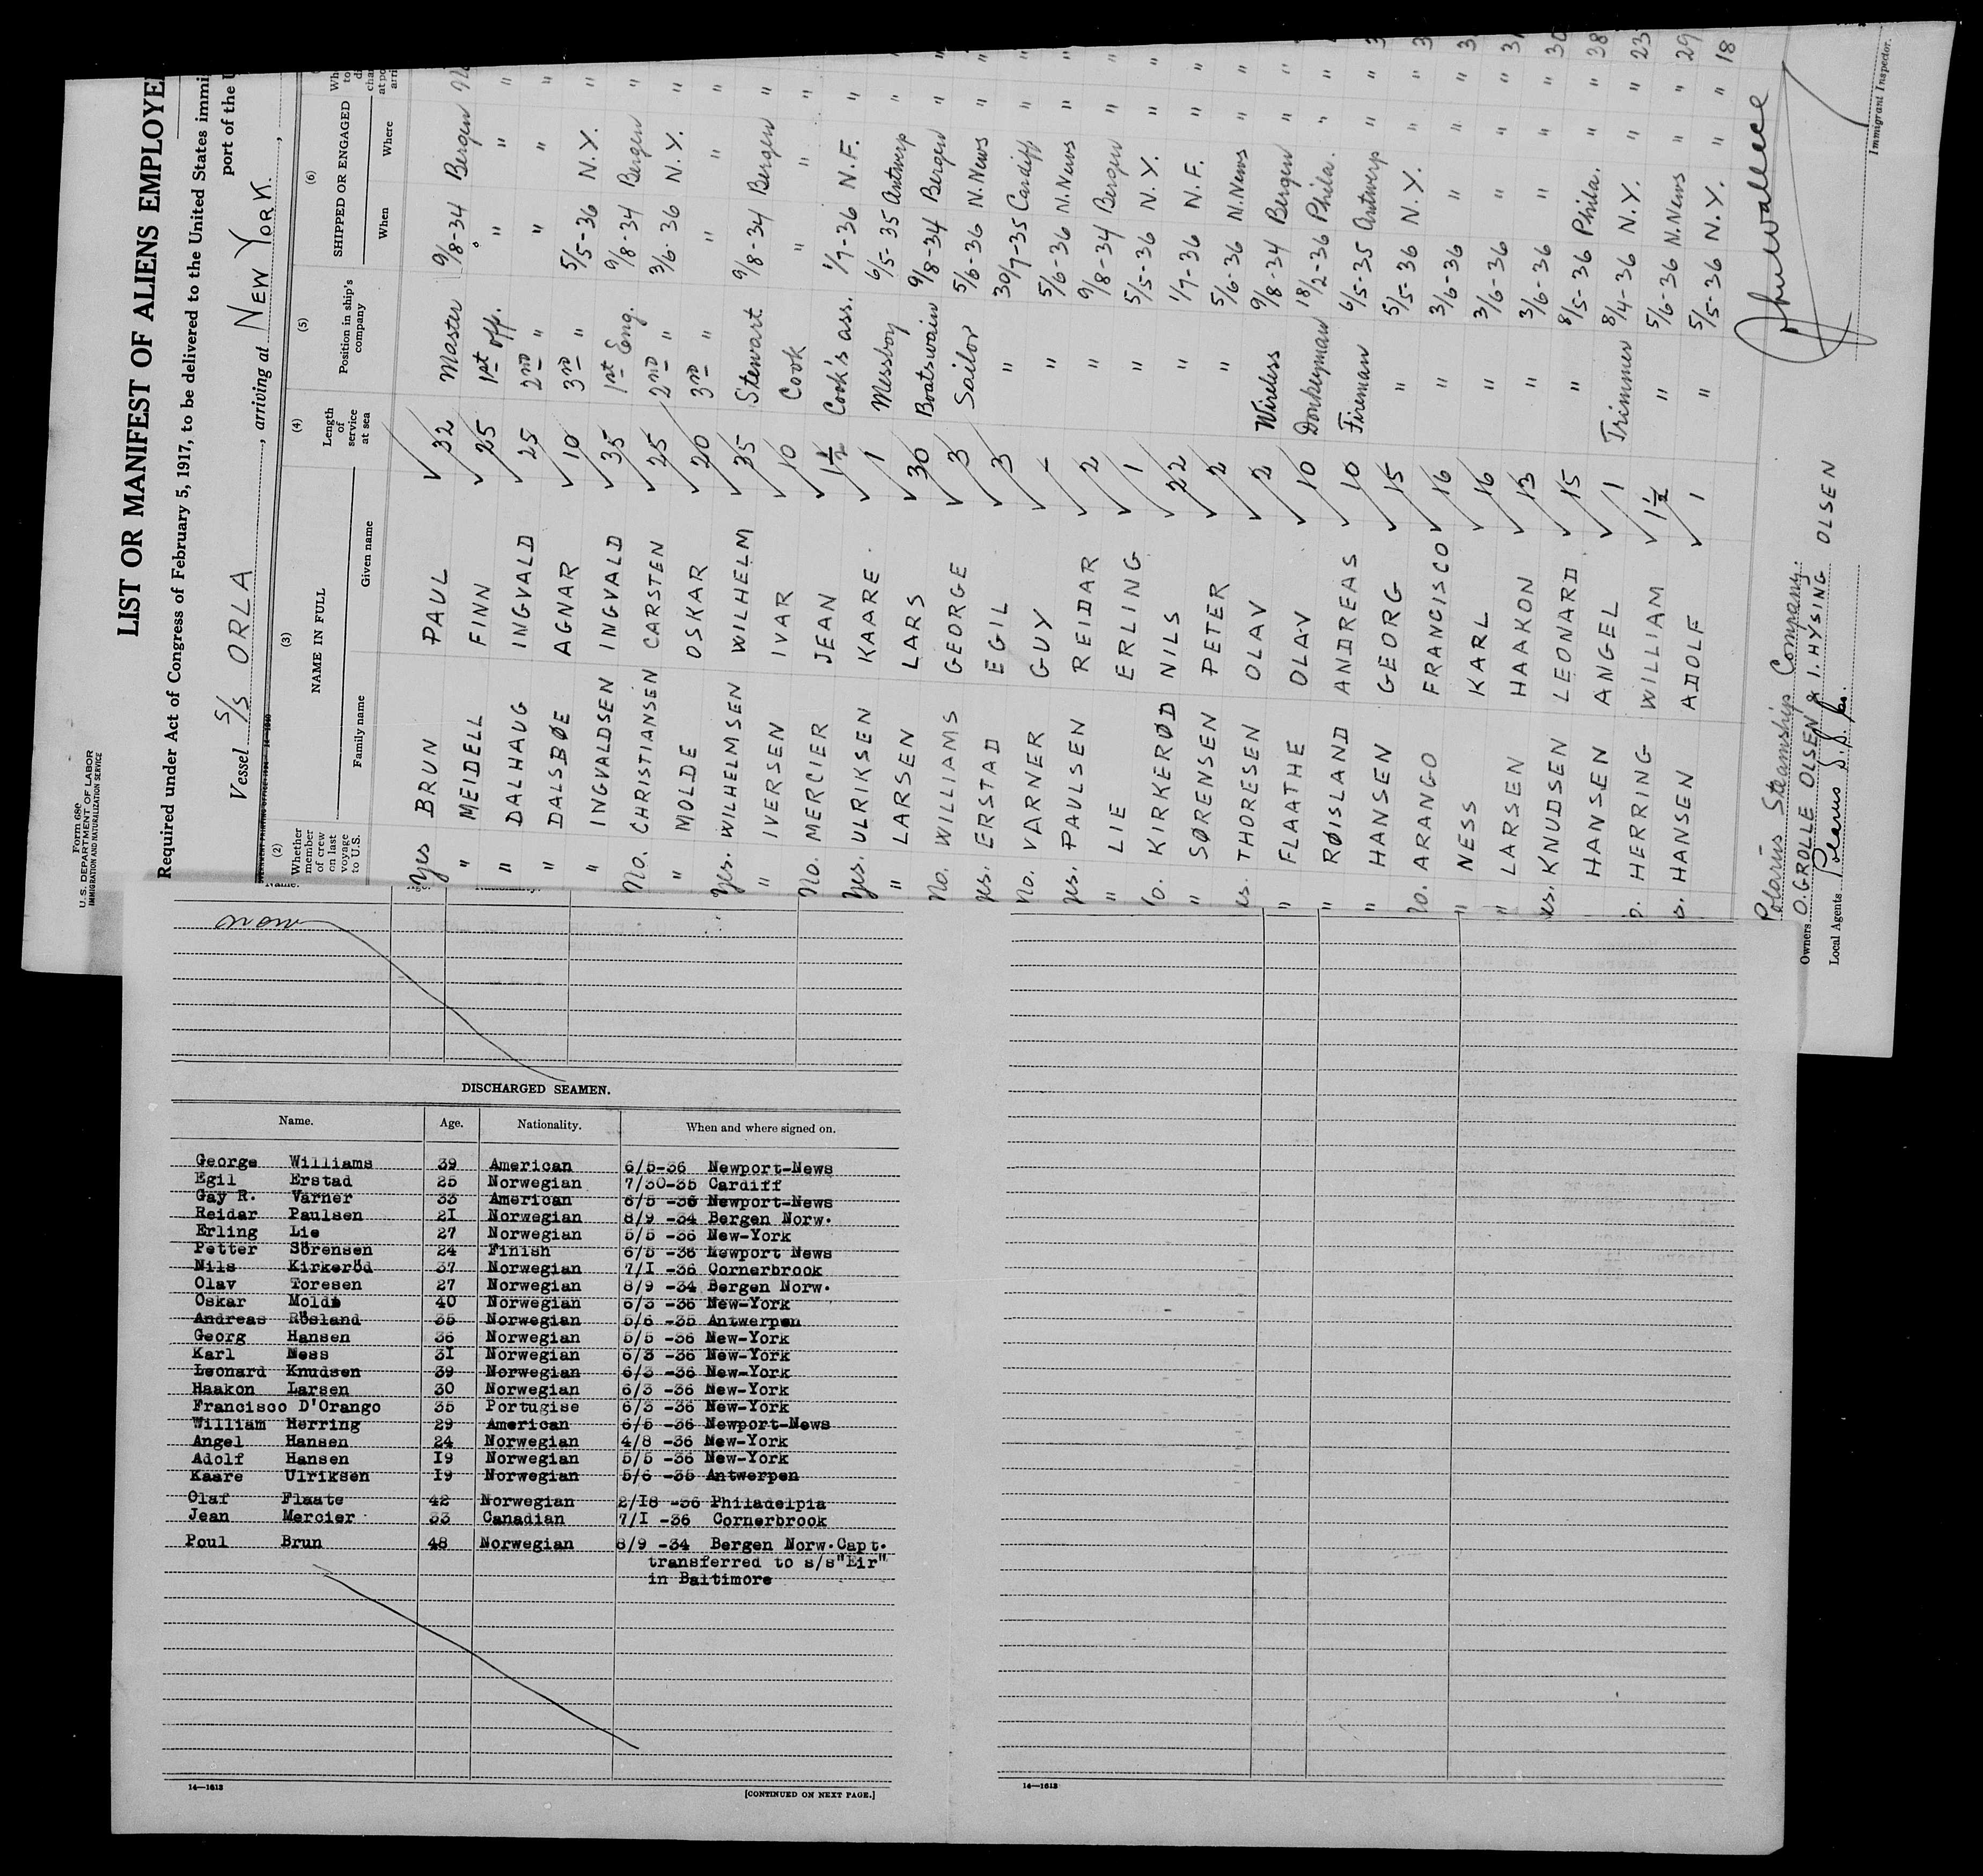 Form 680
U.S. DEPARTMENT OF LABOR
IMMIGRATION AND NATURALIZATION SERVICE
LIST OR MANIFEST OF ALIENS EMPLOYE
Required under Act of Congress of February 5, 1917, to be delivered to the United States immi
port of the U
Vessel S/S ORLA, arriving at NEW YORK.,
(2) (3) (4) (5) (6)
Whether member of crew on last voyage to U.S. NAME IN FULL Family name Given name Length of service at sea Position in ship's company SHIPPED OR ENGAGED When Where
Yes BRUN PAUL 32 Master 9/8-34 Bergen
" MEIDELL FINN 25 1st off. " " "
" DALHAUG INGVALD 25 2nd " " " "
" DALSBØE AGNAR 10 3rd " 5/5-36 N.Y. "
" INGVALDSEN INGVALD 35 1st Eng. 9/8-34 Bergen "
No. CHRISTIANSEN CARSTEN 25 2nd " 3/6-36 N.Y. "
" MOLDE OSKAR 20 3rd " " " "
Yes. WILHELMSEN WILHELM 35 Stewart 9/8-34 Bergen "
" IVERSEN IVAR 10 Cook " " "
No. MERCIER JEAN 1½ Cook's ass. 1/7-36 N.F. "
Yes. ULRIKSEN KAARE. 1 Messboy 6/5-35 Antwerp "
" LARSEN LARS 30 Boatswain 9/8-34 Bergen "
No. WILLIAMS GEORGE 3 Sailor 5/6-36 N.News "
Yes. ERSTAD EGIL 3 " 30/7-35 Cardiff "
No. VARNER GUY - " 5/6-36 N.News "
Yes. PAULSEN REIDAR 2 " 9/8-34 Bergen "
" LIE ERLING 1 " 5/5-36 N.Y. "
o. KIRKERØD NILS 22 " 1/7-36 N.F. "
" SØRENSEN PETER 2 " 5/6-36 N.News "
es. THORESEN OLAV 2 Wireless 9/8-34 Bergen "
" FLAATHE OLAV 10 Donkeyman 18/2-36 Phila. "
" RØISLAND ANDREAS 10 Fireman 6/5-35 Antwerp " 3
" HANSEN GEORG 15 " 5/5-36 N.Y. " 3
o. ARANGO FRANCISCO 16 " 3/6-36 " " 3
" NESS KARL 16 " 3/6-36 " " 31
" LARSEN HAAKON 13 " 3/6-36 " " 30
es. KNUDSEN LEONARD 15 " 8/5-36 Phila. " 38
HANSEN ANGEL 1 Trimmer 8/4-36 N.Y. " 23
o. HERRING WILLIAM 1½ " 5/6-36 N.News " 29
s. HANSEN ADOLF 1 " 5/5-36 N.Y. " 18
Polarus Steamship Company.
Owners O. GROLLE OLSEN & I. HYSING OLSEN
Local Agents
Immigrant Inspector.
DISCHARGED SEAMEN.
Name. Age. Nationality. When and where signed on.
George Williams 39 American 6/5-36 Newport-News
Egil Erstad 25 Norwegian 7/30-35 Cardiff
Gay R. Varner 33 American 6/5 -36 Newport-News
Reidar Paulsen 2I Norwegian 8/9 -34 Bergen Norw.
Erling Lie 27 Norwegian 5/5 -36 New-York
Petter Sörensen 24 Finish 6/5 -36 Newport News
Nils Kirkeröd 37 Norwegian 7/I -36 Cornerbrook
Olav Toresen 27 Norwegian 8/9 -34 Bergen Norw.
Oskar Molde 40 Norwegian 6/3 -36 New-York
Andreas Rösland 35 Norwegian 5/6 -35 Antwerpen
Georg Hansen 36 Norwegian 5/5 -36 New-York
Karl Ness 3I Norwegian 6/3 -36 New-York
Leonard Knudsen 39 Norwegian 6/3 -36 New-York
Haakon Larsen 30 Norwegian 6/3 -36 New-York
Francisco D'Orango 35 Portugise 6/3 -36 New-York
William Herring 29 American 6/5 -36 Newport-News
Angel Hansen 24 Norwegian 4/8 -36 New-York
Adolf Hansen I9 Norwegian 5/5 -36 New-York
Kaare Ulriksen I9 Norwegian 5/6 -35 Antwerpen
Olaf Flaate 42 Norwegian 2/I8 -36 Philadelpia
Jean Mercier 33 Canadian 7/I -36 Cornerbrook
Poul Brun 48 Norwegian 8/9 -34 Bergen Norw.Capt.
transferred to s/s"Eir"
in Baltimore
14—1613
[CONTINUED ON NEXT PAGE.]
14—1613